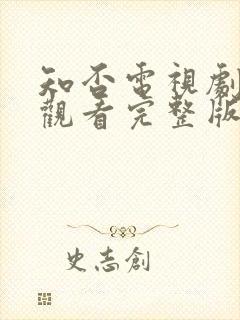 知否電視劇
觀看完整版
史志創